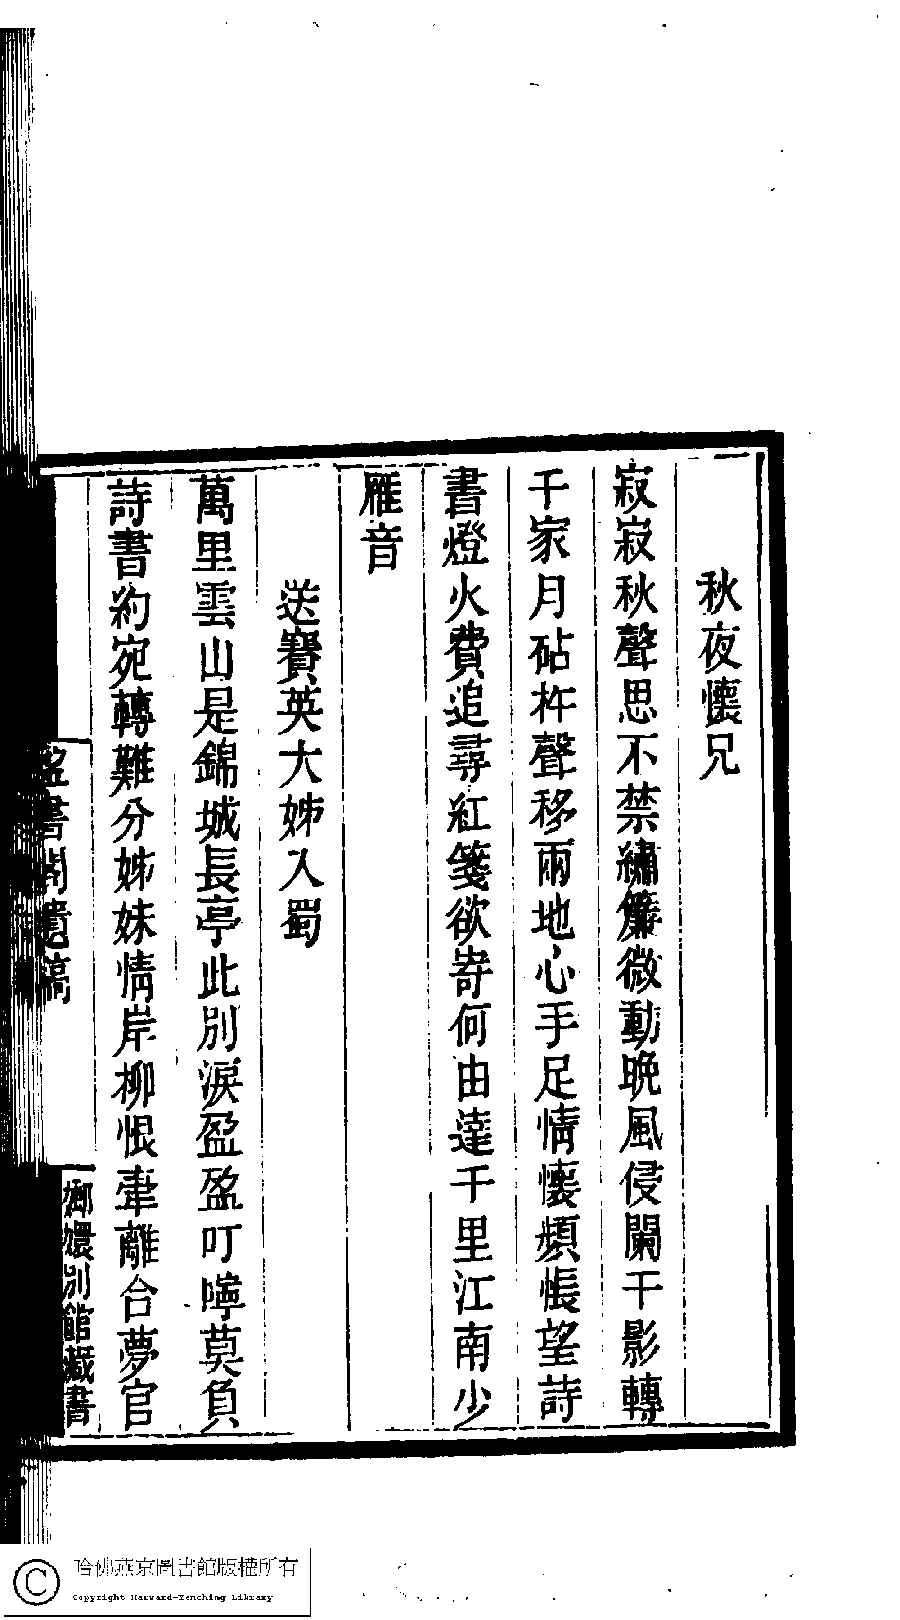 秋夜懷兄
寂寂秋聲思不禁繡簾微動晚風侵闌干影轉
千家月砧杵聲移兩地心手足情懷頻悵望詩
書燈火費追尋紅箋欲寄何由達千里江南少
雁音
送賽英大姊入蜀
萬里雲山是錦城長亭此別淚盈盈叮嚀莫負
詩書約宛轉難分姊妹情岸柳恨牽離合夢官
書閣遺稿
嫏嬛別館藏書
哈佛燕京圖書館版權所有
Copyright Harvard-Yenching Library